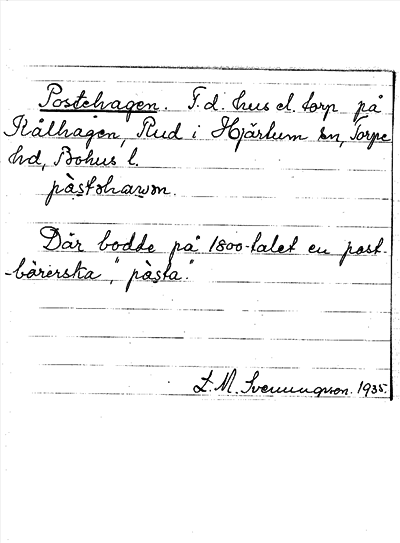 Postehagen. F.d. hus el. torp på
Kålhagen, Rud i Hjärtum sn, Torpe
hd, Bohus l.
Där bodde på 1800-talet en post-
bärerska, "pàsta".
L. M. Svenungsson. 1935.